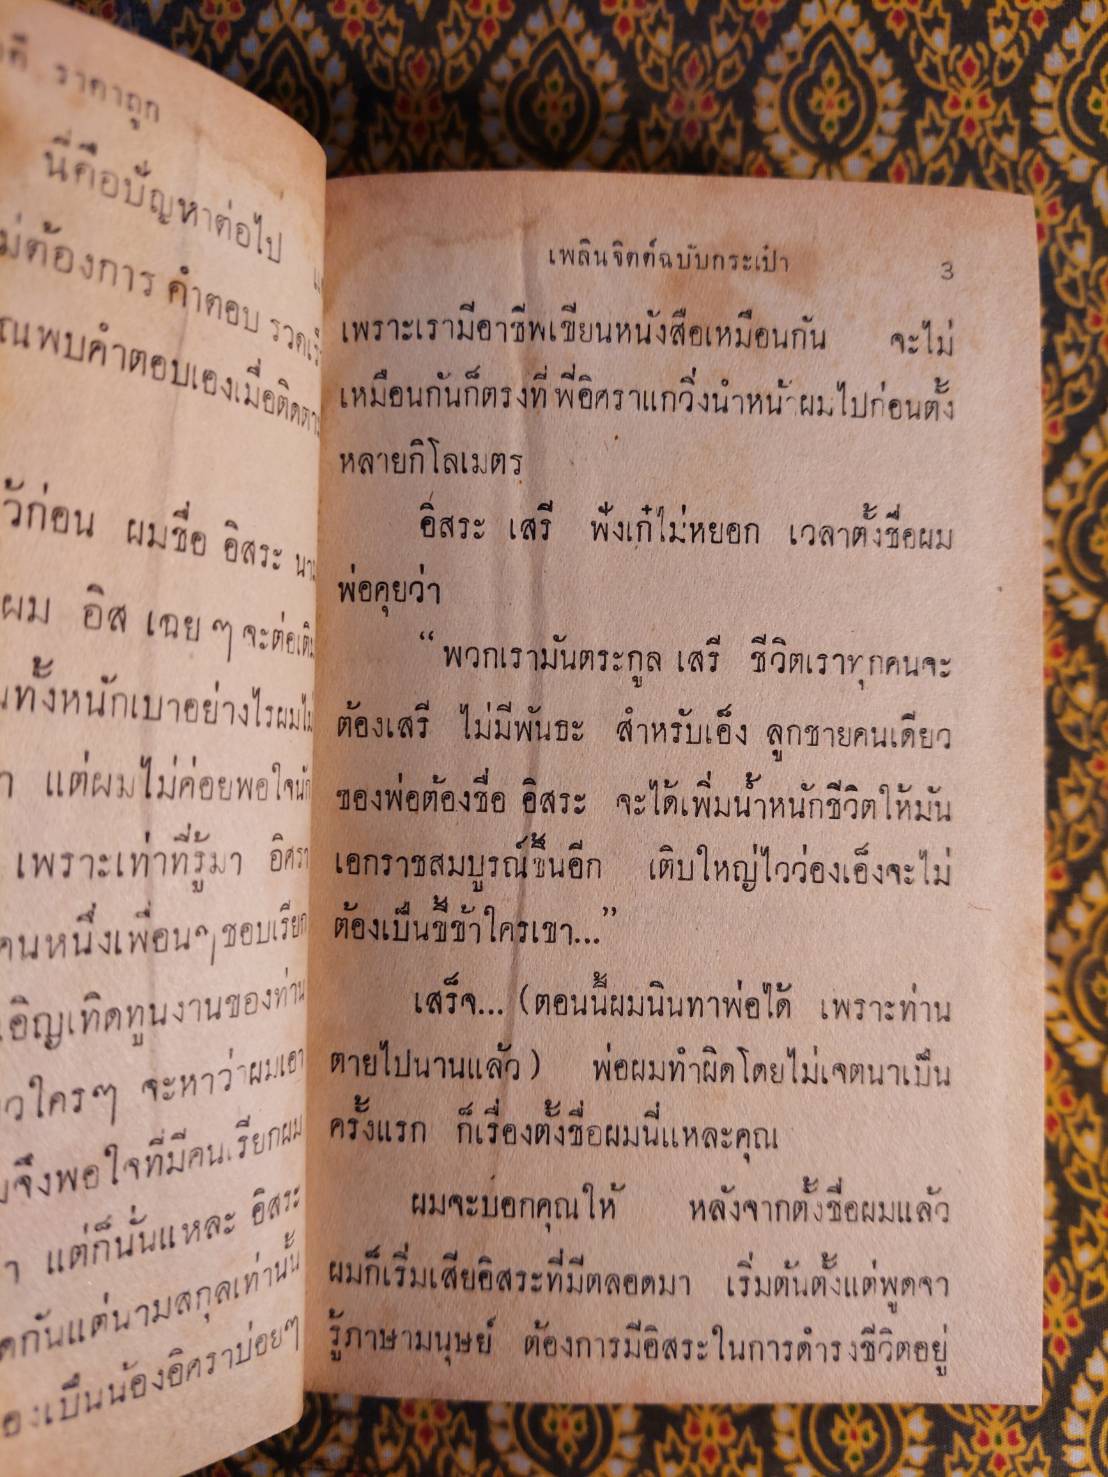 ราคาถูก
นี่คือปัญหาต่อไป
ต้องการ คำตอบ
พบคำตอบเองเมื่อ
ก่อน ผมชื่อ อิสระ
ผม อิส เฉย ๆ จะต่อเติม
ทั้งหนักเบาอย่างไรผมไม่
แต่ผมไม่ค่อยพอใจนัก
เพราะเท่าที่รู้มา อิศรา
คนหนึ่งเพื่อนๆ ชอบเรียก
เทิดทูนงานของท่าน
ใครๆ จะหาว่าผมเอา
จึงพอใจที่มีคนเรียกผม
แต่ก็นั่นแหละ อิสระ
กันแต่นามสกุลเท่านั้น
เป็นน้องอิศราบ่อยๆ
เพลินจิตต์ฉบับกระเป๋า 3
เพราะเรามีอาชีพเขียนหนังสือเหมือนกัน จะไม่
เหมือนกันก็ตรงที่ พี่อิศราแกวิ่งนำหน้าผมไปก่อนตั้ง
หลายกิโลเมตร
อิสระ เสรี ฟังเก๋ไม่หยอก เวลาตั้งชื่อผม
พ่อคุยว่า
“พวกเรามันตระกูล เสรี ชีวิตเราทุกคนจะ
ต้องเสรี ไม่มีพันธะ สำหรับเอ็ง ลูกชายคนเดียว
ของพ่อต้องชื่อ อิสระ จะได้เพิ่มน้ำหนักชีวิตให้มัน
เอกราชสมบูรณ์ขึ้นอีก เติบใหญ่ไวว่องเอ็งจะไม่
ต้องเป็นขี้ข้าใครเขา...”
เสร็จ... (ตอนนี้ผมนินทาพ่อได้ เพราะท่าน
ตายไปนานแล้ว) พ่อผมทำผิดโดยไม่เจตนาเป็น
ครั้งแรก ก็เรื่องตั้งชื่อผมนี่แหละคุณ
ผมจะบอกคุณให้ หลังจากตั้งชื่อผมแล้ว
ผมก็เริ่มเสียอิสระที่มีตลอดมา เริ่มต้นตั้งแต่พูดจา
รู้ภาษามนุษย์ ต้องการมีอิสระในการดำรงชีวิตอยู่